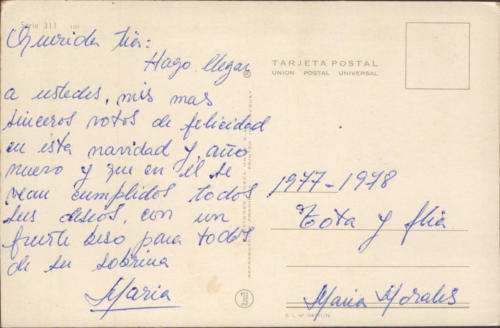 Serie 311
Queridos tios:
Hago llegar
a ustedes, mis mas
sinceros votos de felicidad
en esta navidad y año
nuevo y que en él se
vean cumplidos todos
sus deseos, con un
fuerte beso para todos
de su sobrina
Maria
TARJETA POSTAL
UNION POSTAL UNIVERSAL
1977-1978
Tota y flia
Maria Morales